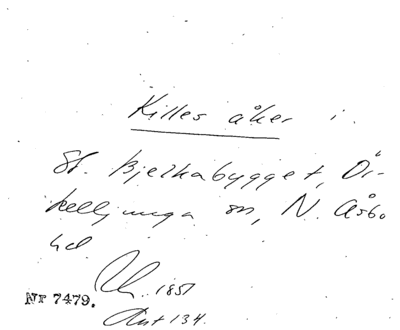 Killes åker i
St. Bjelkabygget, Ör-
kelljunga sn, N. Åsbo
hd.
1851
Nr 7479.
Ant 134.